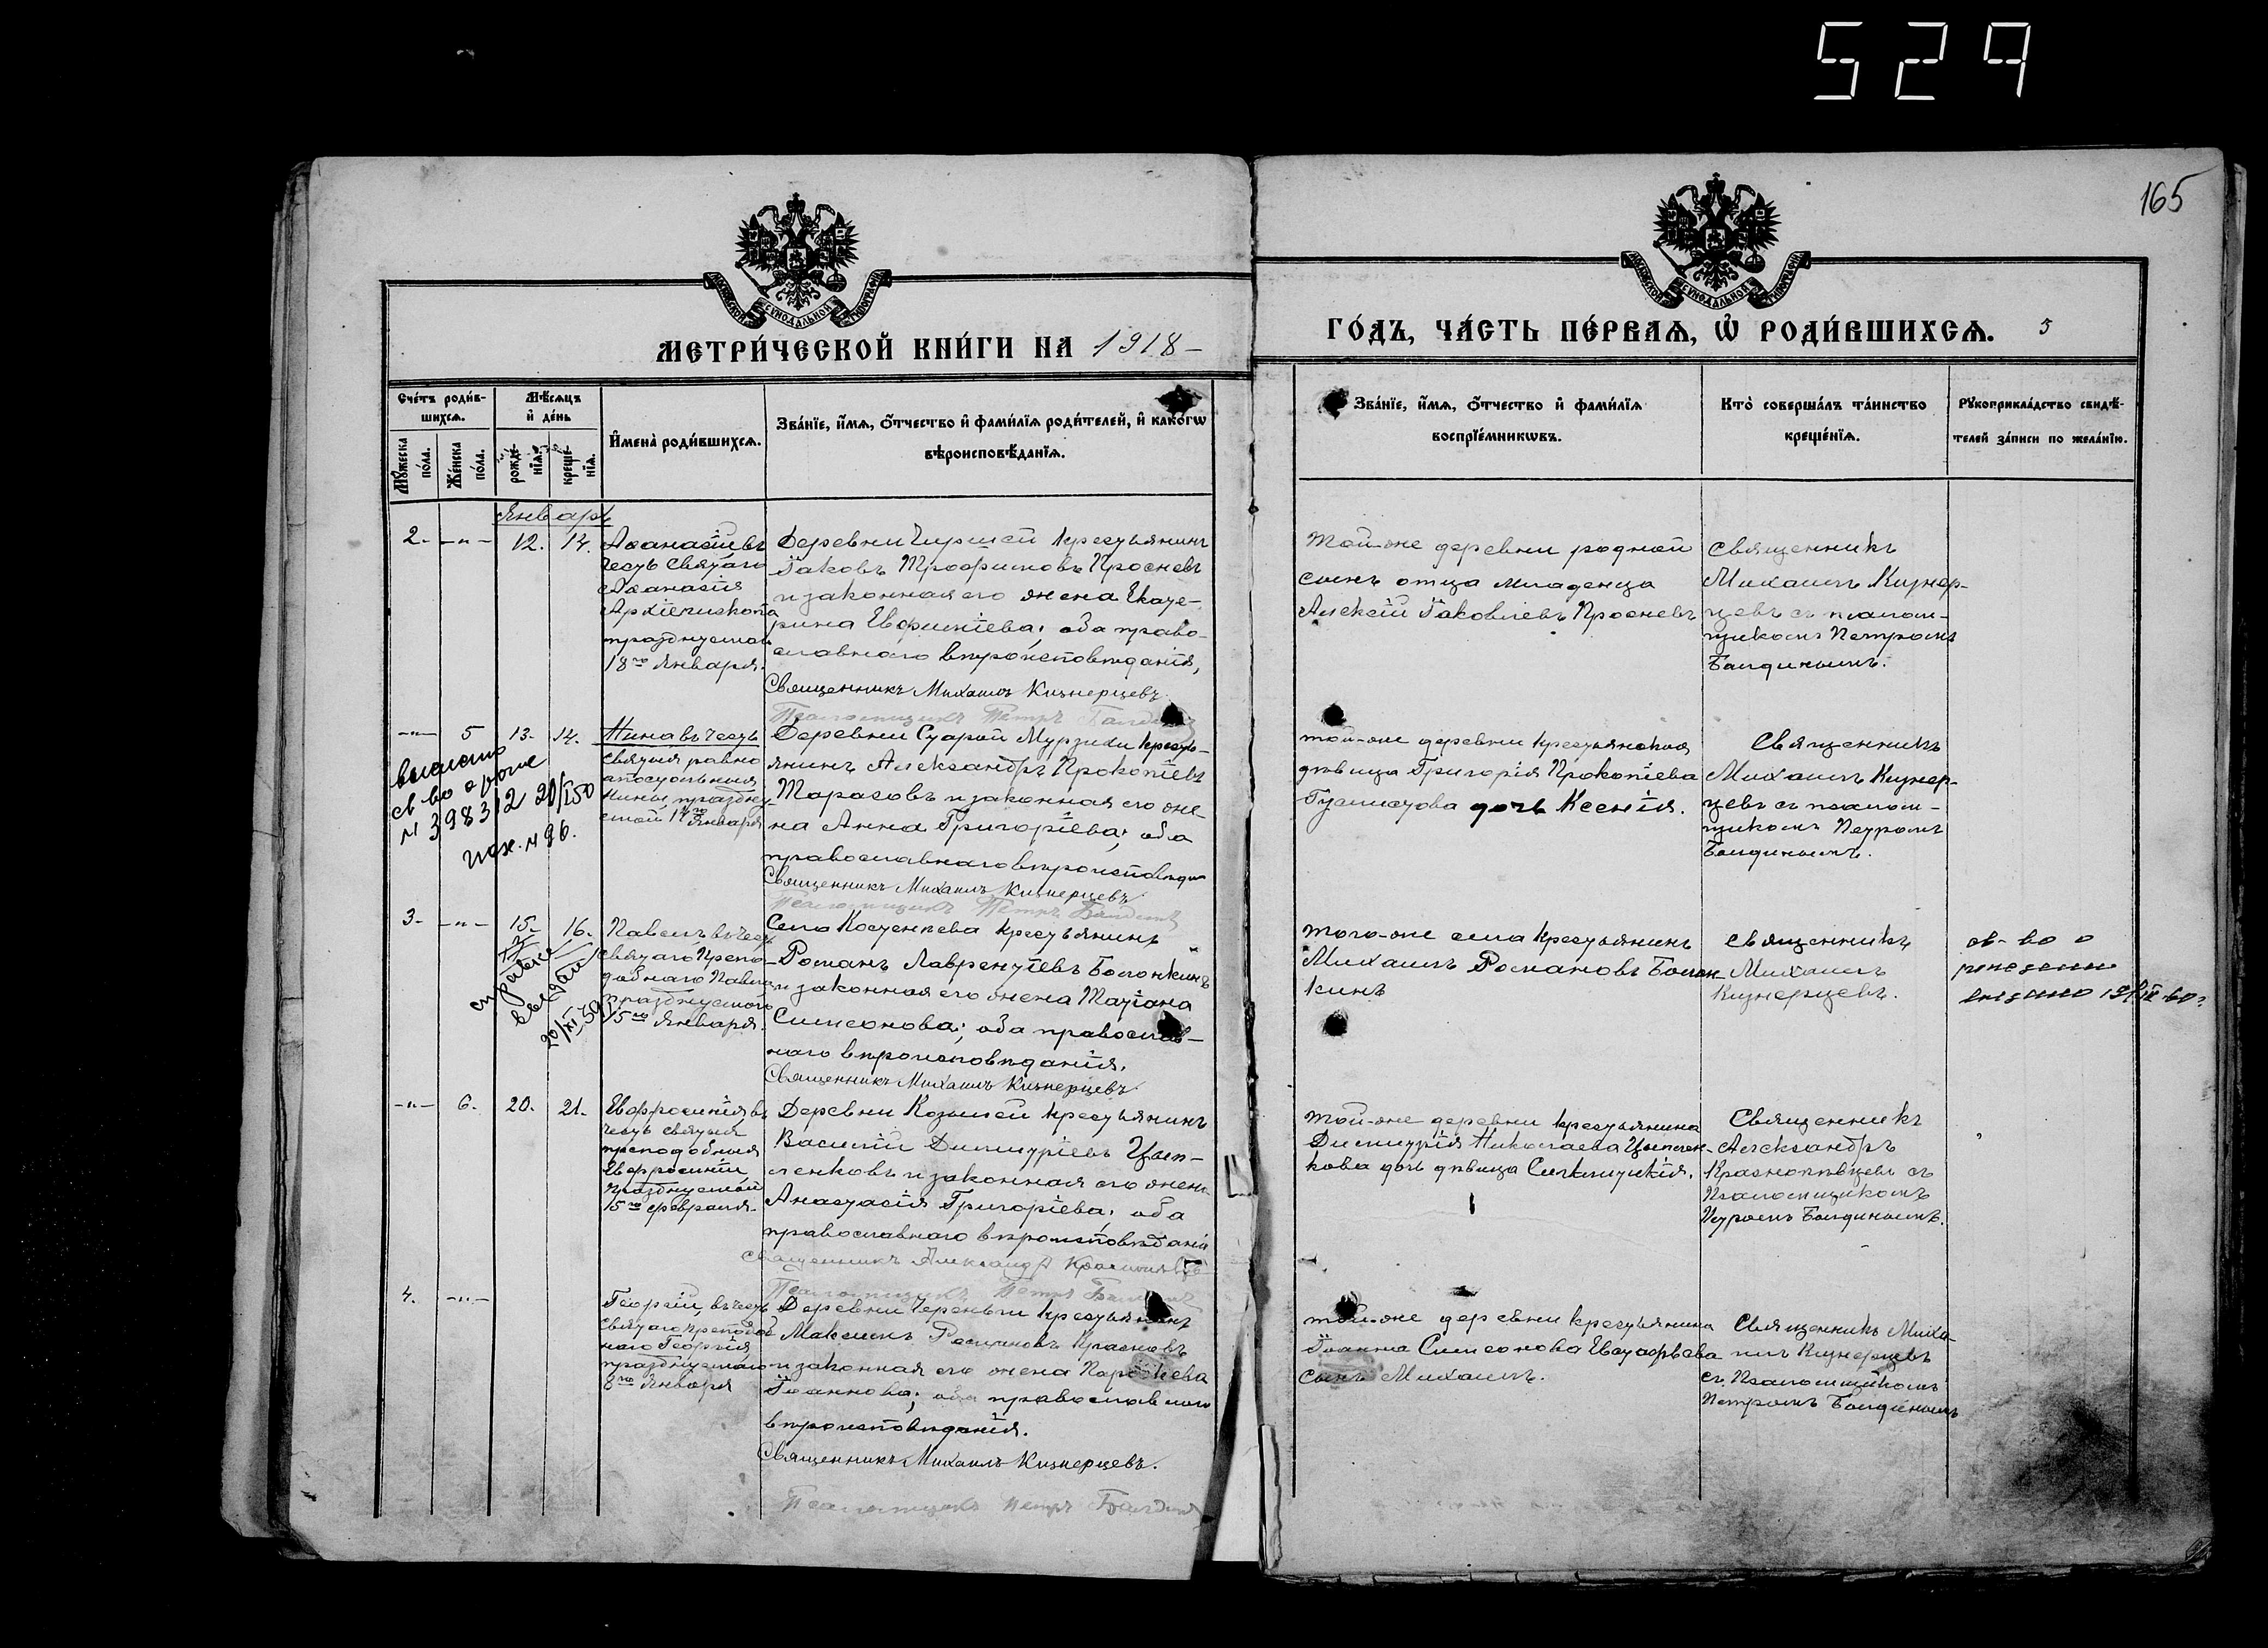 529
165
МЕТРИ́ЧЕСКОЙ КНИ́ГИ НА 1918-
ГО́ДЪ, ЧА́СТЬ ПЕ́РВАѦ, Ѡ҆ РОДИ́ВШИХСѦ. 5
Сче́тъ роди́в-
шихсѧ.
Мꙋ́жеска по́ла.
Же́нска по́ла.
Мѣ́сѧцъ
и҆ де́нь
рожде-нїѧ.
креще-нїѧ.
И҆мена̀ роди́вшихсѧ.
Зва́нїе, и҆́мѧ, ѻ҆́тчество и҆ фами́лїѧ роди́телей, и҆ како́гѡ
вѣроисповѣ́данїѧ.
Зва́нїе, и҆́мѧ, ѻ҆́тчество и҆ фами́лїѧ
воспрїе́мникѡвъ.
Кто̀ соверша́лъ та́инство
креще́нїѧ.
Рꙋкоприкла́дство свидѣ́-
телей за́писи по жела́нїю.
Январь
2. -„- 12. 14.
Аѳанасій въ
честь святаго
Аѳанасія
Архіепископа
празднуемаго
18го Января.
Деревни Чиршей крестьянинъ
Іаковъ Трофимовъ Просневъ
и законная его жена Екате-
рина Евфиміева; оба право-
славнаго вѣроисповѣданія,
Священникъ Михаилъ Кизнерцевъ
Псаломщикъ Петръ Балдинъ
Той-же деревни родной
сынъ отца младенца
Алексій Іаковлевъ Просневъ
Священникъ
Михаилъ Кизнер-
цевъ съ псалом-
щикомъ Петромъ
Балдинымъ.
-„- 5 13. 14.
Нина въ честь
святыя равно
апостольныя
Нины, праздну-
емой 14го Января
Деревни Старой Мурзихи кресть-
янинъ Александръ Прокопіевъ
Тарасовъ и законная его же-
на Анна Григоріева; оба
православнаго вѣроисповѣда
Священникъ Михаилъ Кизнерцевъ
Псаломщикъ Петръ Балдинъ
той-же деревни крестьянская
дѣвица Григорія Прокопіева
дочь Ксенія.
Священникъ
Михаилъ Кизнер-
цевъ съ псалом-
щикомъ Петромъ
Балдинымъ.
выслано
св-во о рожд
№ 398312 20/I 50
исх. № 96.
3- -„- 15. 16.
Павелъ въ честь
святаго Препо-
добнаго Павла
празднуемаго
15го Января.
Села Костенеева крестьянинъ
Романъ Лаврентіевъ Болонкинъ
и законная его жена Татіана
Симеонова; оба православ-
наго вѣроисповѣданія.
Священникъ Михаилъ Кизнерцевъ.
того-же села крестьянинъ
Михаилъ Романовъ Болон-
кинъ
Священникъ
Михаилъ
Кизнерцевъ.
св-во о
рождении
справка
20/XI 59
-„- 6. 20. 21.
Евфросинія въ
честь святыя
преподобныя
Евфросиніи,
празднуемой
15го февраля.
Деревни Козылей крестьянинъ
Василій Димитріевъ Цып-
ленковъ и законная его жена
Анастасія Григоріева; оба
православнаго вѣроисповѣдані
Священникъ Александр Краснопѣвцевъ
Псаломщикъ Петръ Балдинъ
той-же деревни крестьянина
Димитрія Николаева Цыплен-
кова дочь дѣвица
Священникъ
Александръ
Краснопѣвцевъ съ
Псаломщикомъ
Петромъ Балдинымъ.
4. -„-
Георгій, въ честь
святаго преподоб
наго Георгія
празднуемаго
8го Января
Деревни крестьянинъ
Максимъ Красновъ
и законная его жена Параскева
Іоаннова; оба православнаго
вѣроисповѣданія.
Священникъ Михаилъ Кизнерцевъ.
Псаломщикъ Петръ Балдинъ
той-же деревни крестьянина
Іоанна Симеонова Евстафьева
сынъ Михаилъ.
Священникъ Миха-
илъ Кизнерцевъ
съ Псаломщикомъ
Петромъ Балдинымъ